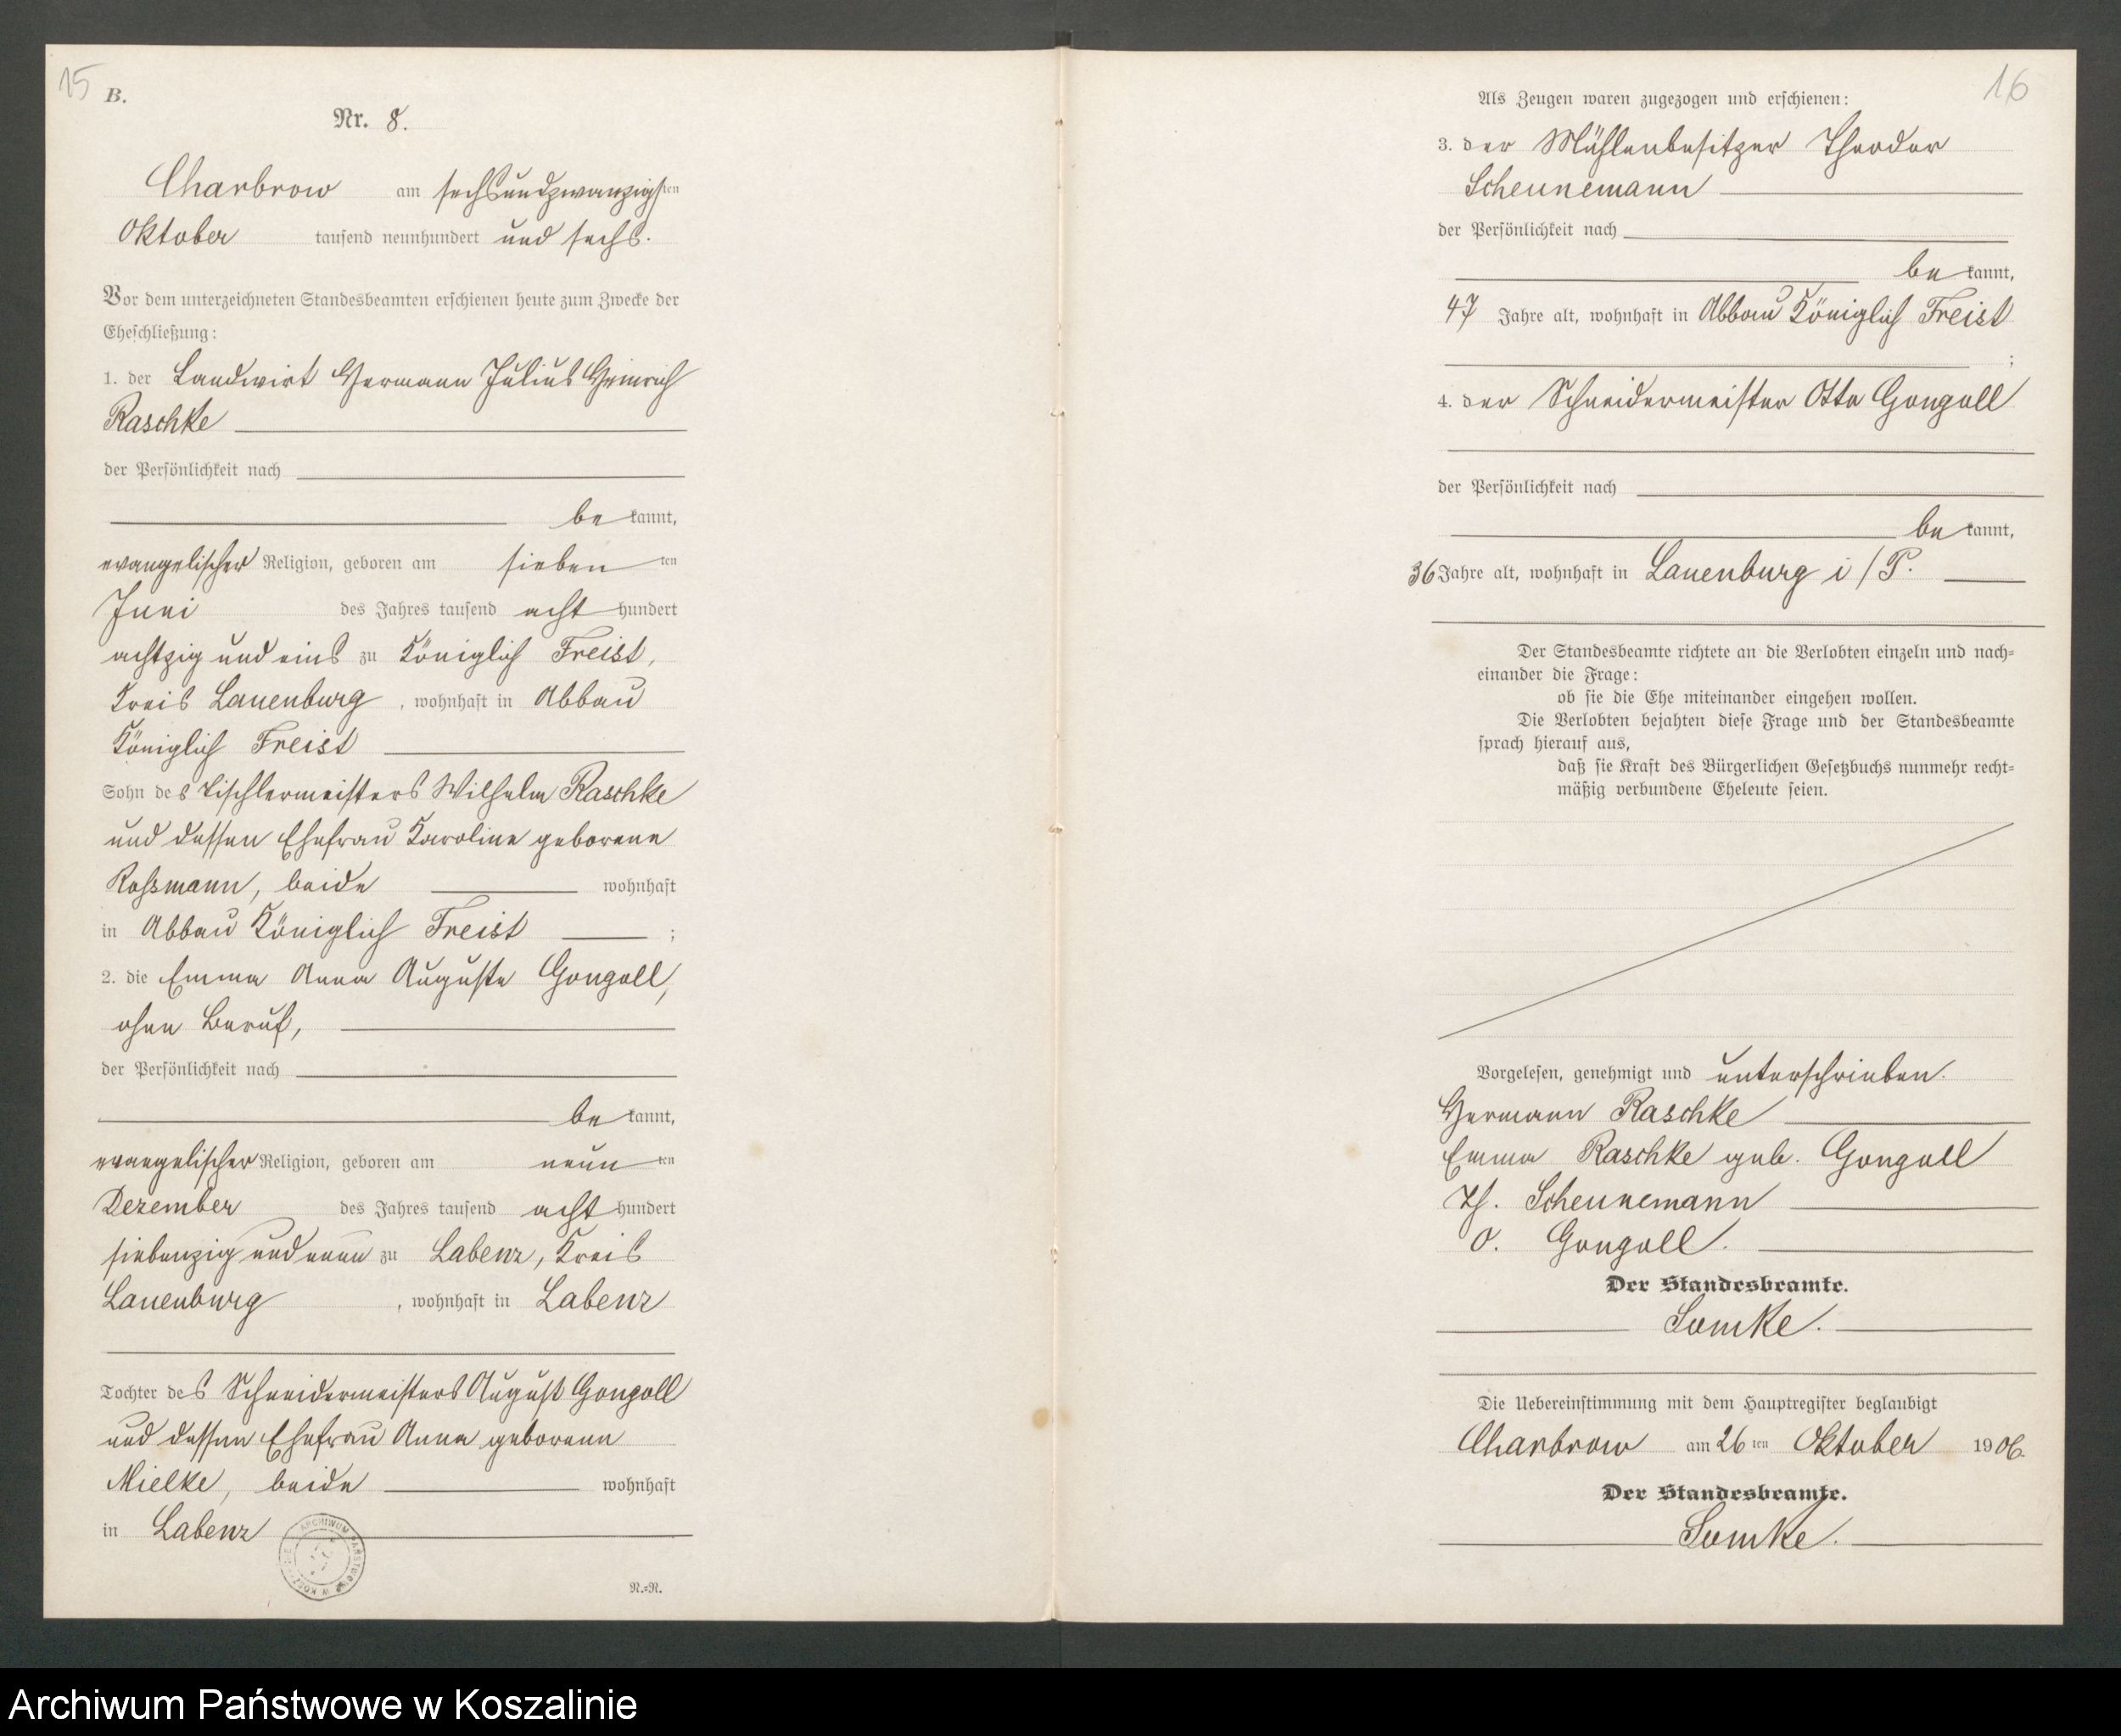 15
B.
Nr. 8.
Charbrow am sechsundzwanzigsten
Oktober tausend neunhundert und sechs.
Vor dem unterzeichneten Standesbeamten erschienen heute zum Zwecke der
Eheschließung:
1. der Landwirt Hermann Julius Heinrich
Raschke
der Persönlichkeit nach
be kannt,
evangelischer Religion, geboren am sieben ten
Juni des Jahres tausend acht hundert
achtzig und eins zu Königlich Freist,
Kreis Lauenburg, wohnhaft in Abbau
Königlich Freist
Sohn des Tischlermeisters Wilhelm Raschke
und dessen Ehefrau Karoline geborene
Roßmann, beide wohnhaft
in Abbau Königlich Freist ;
2. die Emma Anna Auguste Gongoll,
ohne Beruf,
der Persönlichkeit nach
be kannt,
evangelischer Religion, geboren am neun ten
Dezember des Jahres tausend acht hundert
siebenzig und neun zu Labenz, Kreis
Lauenburg, wohnhaft in Labenz
Tochter des Schneidermeisters August Gongoll
und dessen Ehefrau Anna geborenen
Mielke, beide wohnhaft
in Labenz
ARCHIWUM PAŃSTWOWE W
N.=R.
16
Als Zeugen waren zugezogen und erschienen:
3. der Mühlenbesitzer Theodor
Scheunemann
der Persönlichkeit nach
be kannt,
47 Jahre alt, wohnhaft in Abbau Königlich Freist
;
4. der Schneidermeister Otto Gongoll
der Persönlichkeit nach
be kannt,
36 Jahre alt, wohnhaft in Lauenburg i/P.
Der Standesbeamte richtete an die Verlobten einzeln und nach=
einander die Frage:
ob sie die Ehe miteinander eingehen wollen.
Die Verlobten bejahten diese Frage und der Standesbeamte
sprach hierauf aus,
daß sie kraft des Bürgerlichen Gesetzbuchs nunmehr recht=
mäßig verbundene Eheleute seien.
Vorgelesen, genehmigt und unterschrieben.
Hermann Raschke
Emma Raschke geb. Gongoll
Th. Scheunemann
O. Gongoll.
Der Standesbeamte.
Lomke.
Die Uebereinstimmung mit dem Hauptregister beglaubigt
Charbrow am 26 ten Oktober 1906.
Der Standesbeamte.
Lomke.
Archiwum Państwowe w Koszalinie